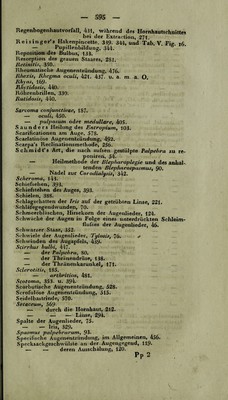 — 595 —
Regenbogenhautvorfall, 431, während des Hornhautschnittes
bei der Extraction, 271.
Reisinger's Hakenpincette, 349. 344, und Tab. V. Fig. 16.
— Pupillenbildung, 344.
Reposition des Bulbus, 138.
Resorption des grauen Staares, 281.
Retinitis, 350.
Rheumatische Augenentzündung, 476.
Rhexis, Rhegma oculi, 421. 437. u. a. m. O.
Rhyas, 169.
Rhytidosis, 440.
Röhrenbrillen, 339.
Rutidosis, 440.
Sarcoma conjunctivae, 187.
— oculi, 450.
— pulposum sive medullare, 405.
Saunders Heilung des Entropium, 103.
Scarificationen am Auge, 376.
Scarlatinöse Augenentzündung, 492.
Scarpa's Reclinationsmethode, 250.
Schmidt's Art, die nach aufsen gestülpte Palpebra zu re-
poniren, 54.
— Heilmethode der Blepharoplegie und des anhal-
tenden Blepharospasmus, 90.
— Nadel zur Corodialysis, 342.
Scheroma, 143.
Schiefsehen, 393.
Schiefstehen des Auges, 393.
Schielen, 388.
Schlagschatten der Iris auf der getrübten Linse, 221.
Schleifgegenwunden, 70.
Schmeerbläschen, Hirsekorn der Augenlieder, 124.
Schwäche der Augen in Folge eines unterdrückten Schleim-
flufses der Augenlieder, 46.
Schwarzer Staar, 352.
Schwiele der Augenlieder, Tylosis, 76.
Schwinden des Augapfels, 439.
Scirrhus bulbi, 447.
— der Palpebra, 80.
— der Thränendrüse, 138.
— der Thränenkarunkel, 171.
Sclerotitis, 185.
— arthritica, 481.
Scotoma, 353. u. 394.
Scorbutische Augenentzündung, 528.
Scrofulöse Augenentzündung, 513.
Seidelbastrinde, 370.
Setaceum, 569.
— durch die Hornhaut, 212.
— — — Linse, 294.
Spalte der Augenlieder, 75.
— — Iris, 329.
Spasmus palpebrarum, 93.
Specifische Augenentzündung, im Allgemeinen, 456.
Speckssackgeschwülste an der Augengegend, 119.
— — deren Ausschälung, 120.
Pp 2